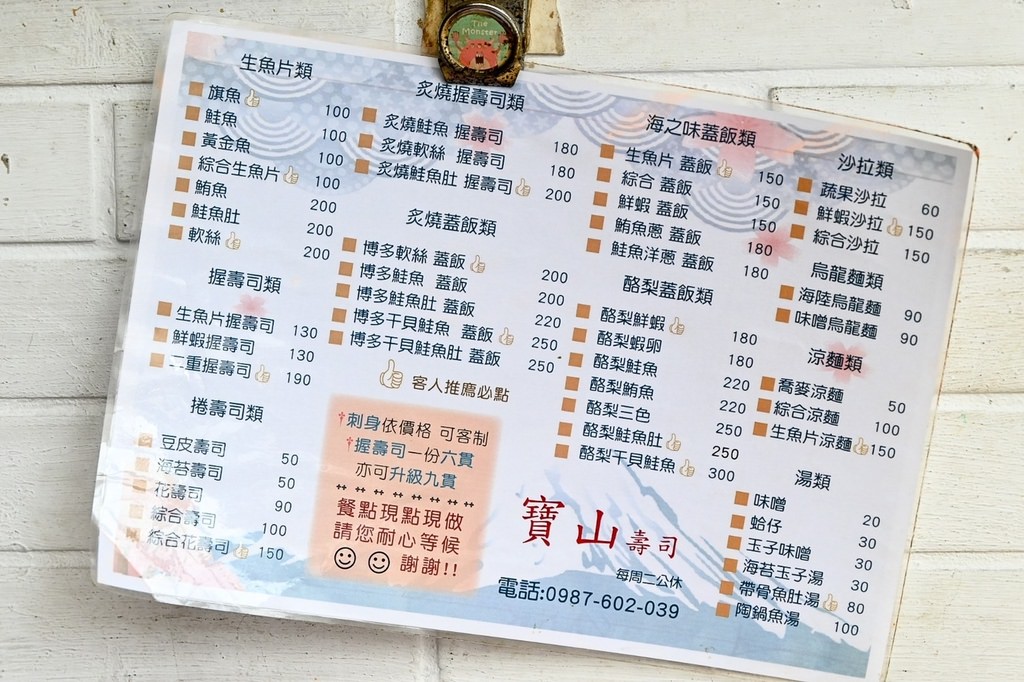 The
Monster
生魚片類
旗魚 100
鮭魚 100
黃金魚 100
綜合生魚片 100
鮪魚 200
鮭魚肚 200
軟絲 200
握壽司類
生魚片握壽司 130
鮮蝦握壽司 130
二重握壽司 190
捲壽司類
豆皮壽司 50
海苔壽司 50
花壽司 90
綜合壽司 100
綜合花壽司 150
炙燒握壽司類
炙燒鮭魚 握壽司 180
炙燒軟絲 握壽司 180
炙燒鮭魚肚 握壽司 200
炙燒蓋飯類
博多軟絲 蓋飯 200
博多鮭魚 蓋飯 200
博多鮭魚肚 蓋飯 220
博多干貝鮭魚 蓋飯 250
博多干貝鮭魚肚 蓋飯 250
客人推薦必點
†刺身依價格 可客制
†握壽司一份六貫
亦可升級九貫
餐點現點現做
請您耐心等候
謝謝!!
海之味蓋飯類
生魚片 蓋飯 150
綜合 蓋飯 150
鮮蝦 蓋飯 150
鮪魚蔥 蓋飯 180
鮭魚洋蔥 蓋飯 180
酪梨蓋飯類
酪梨鮮蝦 180
酪梨蝦卵 180
酪梨鮭魚 220
酪梨鮪魚 220
酪梨三色 250
酪梨鮭魚肚 250
酪梨干貝鮭魚 300
沙拉類
蔬果沙拉 60
鮮蝦沙拉 150
綜合沙拉 150
烏龍麵類
海陸烏龍麵 90
味噌烏龍麵 90
涼麵類
蕎麥涼麵 50
綜合涼麵 100
生魚片涼麵 150
湯類
味噌 20
蛤仔 30
玉子味噌 30
海苔玉子湯 30
帶骨魚肚湯 80
陶鍋魚湯 100
寶山壽司
每周二公休
電話:0987-602-039